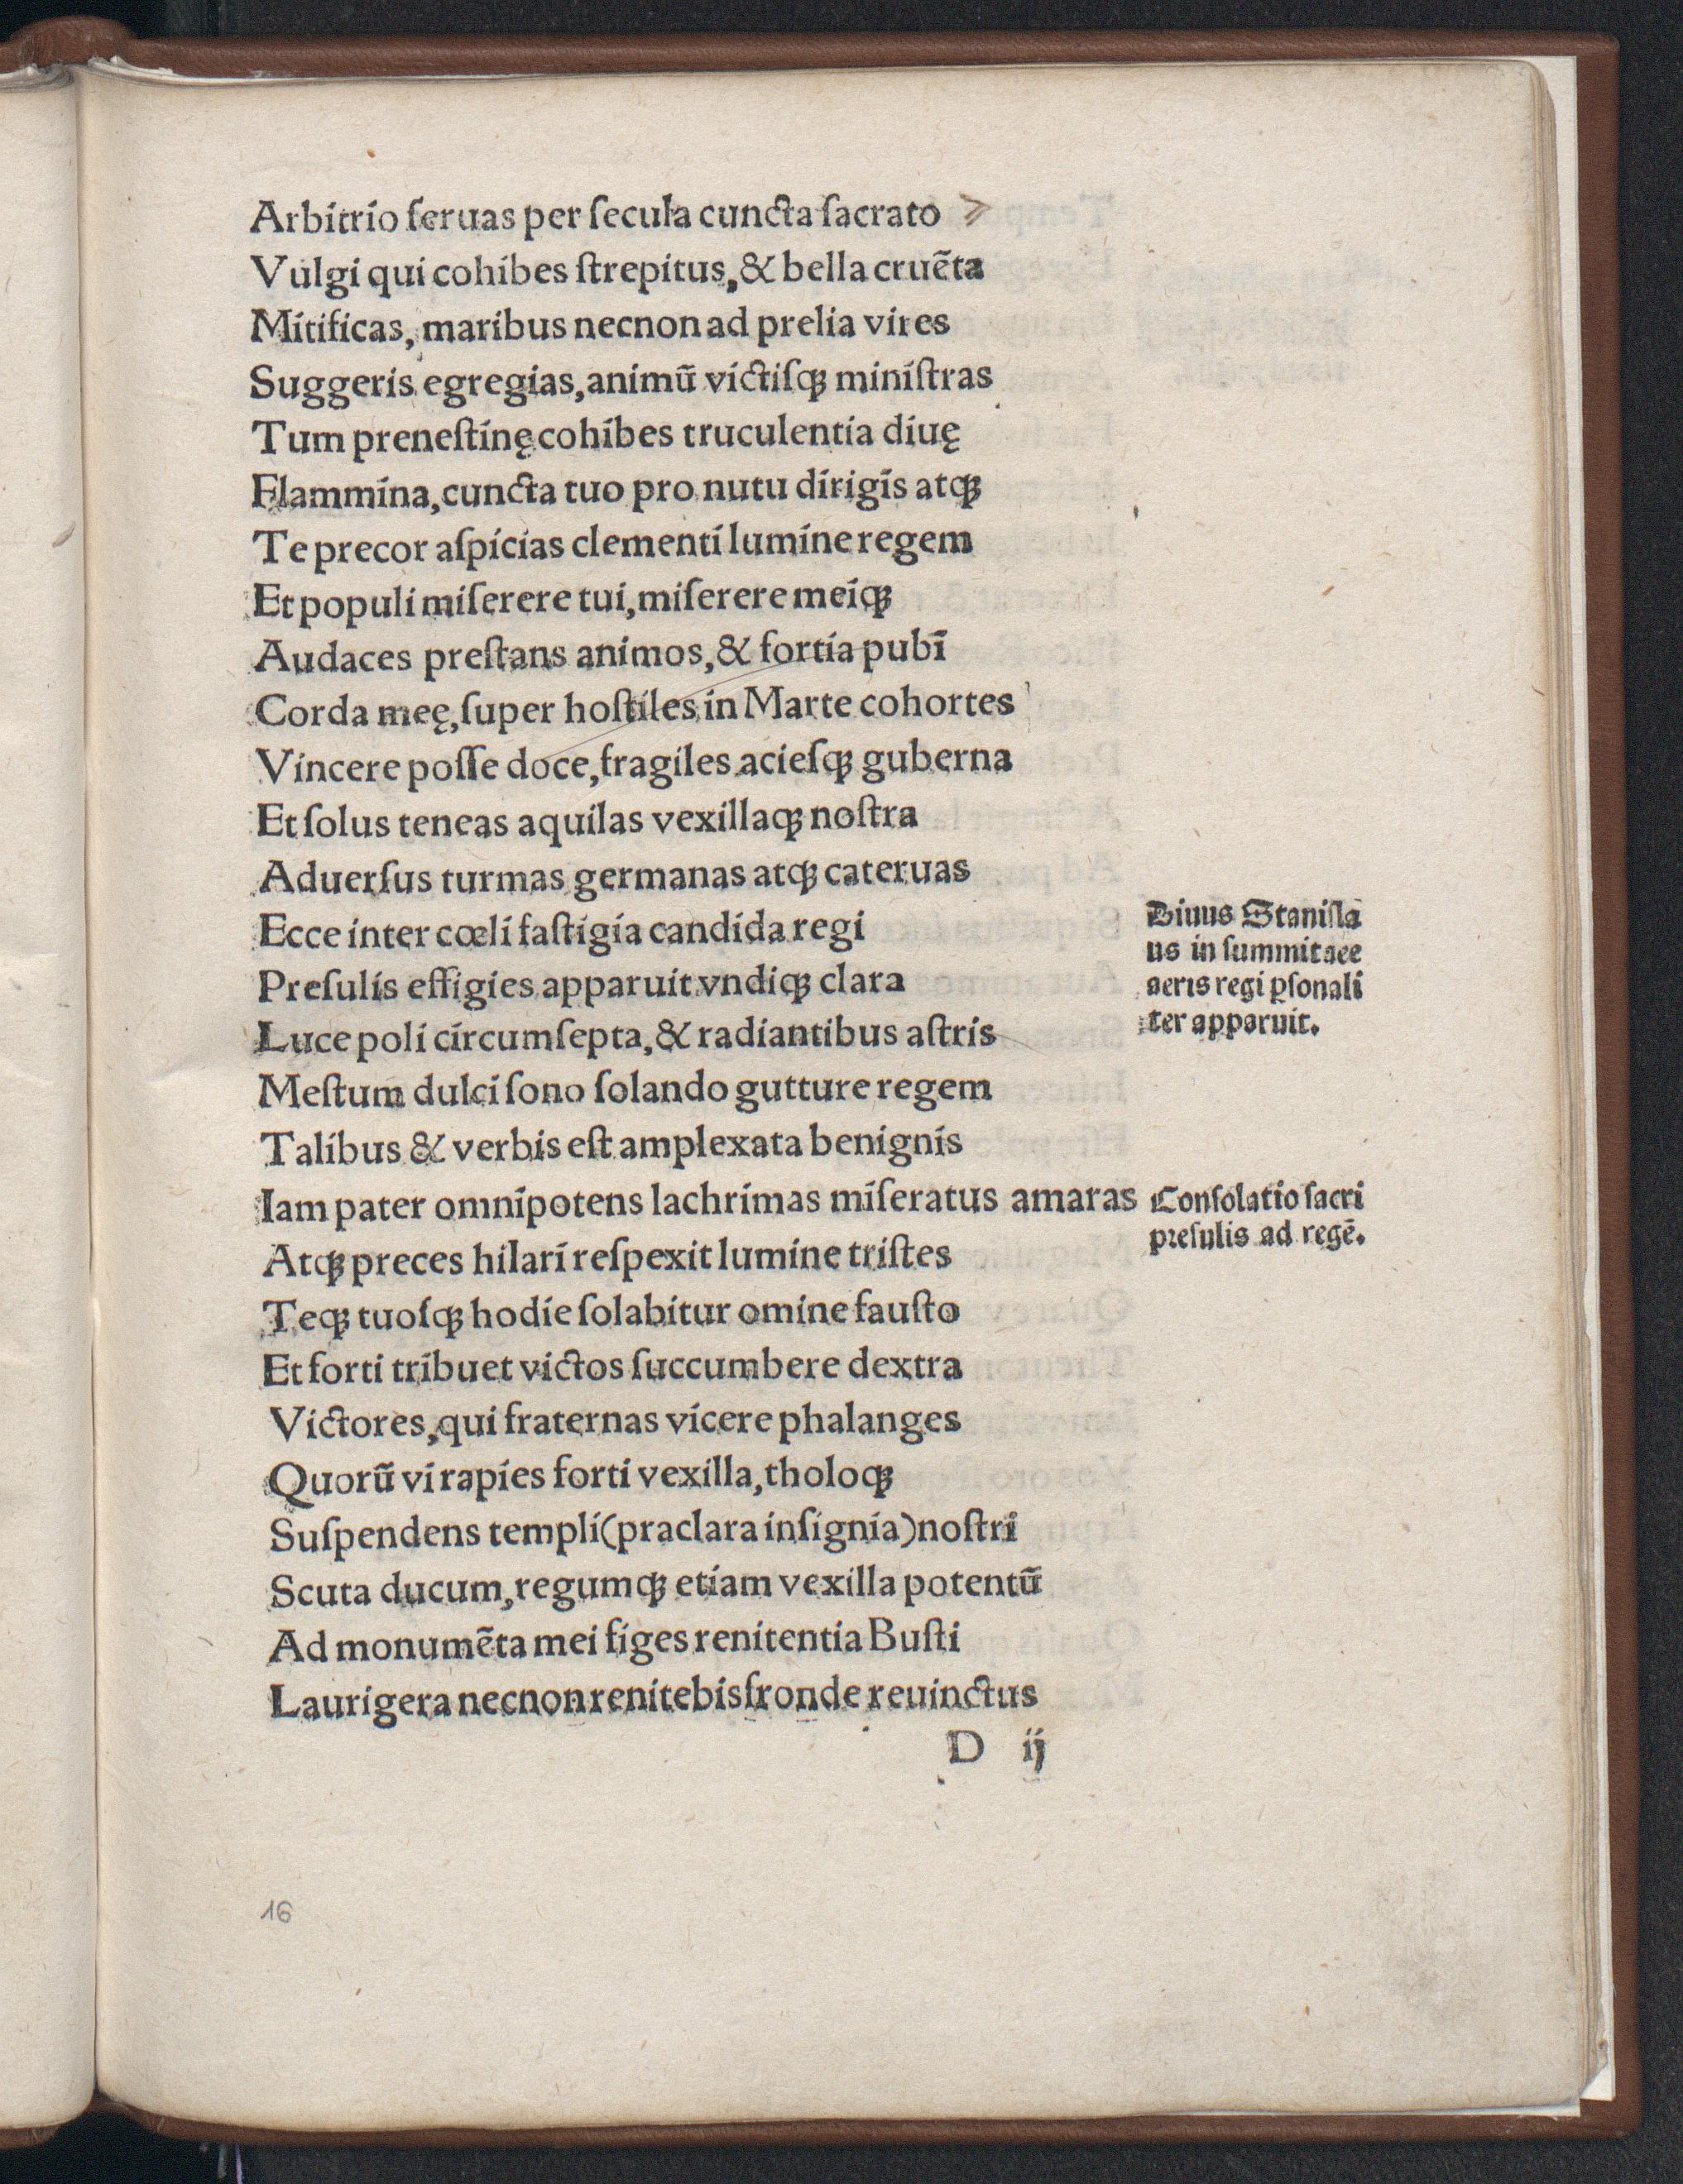 Arbitrio ſeruas per ſecula cuncta ſacrato
Vulgi qui cohibes ſtrepitus, & bella cruẽta
Mitificas, maribus necnon ad prelia vires
Suggeris egregias, animũ victiſqꝫ miniſtras
Tum preneſtinę cohibes truculentia diuę
Flammina, cuncta tuo pro nutu dirigis atqꝫ
Te precor aſpicias clementi lumine regem
Et populi miſerere tui, miſerere meiqꝫ
Audaces preſtans animos, & fortia pubĩ
Corda meę, ſuper hoſtiles in Marte cohortes
Vincere poſſe doce, fragiles acieſqꝫ guberna
Et ſolus teneas aquilas vexillaqꝫ noſtra
Aduerſus turmas germanas atqꝫ cateruas
Ecce inter cœli faſtigia candida regi
Preſulis effigies apparuit vndiqꝫ clara
Luce poli circumſepta, & radiantibus aſtris
Meſtum dulci ſono ſolando gutture regem
Talibus & verbis eſt amplexata benignis
Iam pater omnipotens lachrimas miſeratus amaras
Atqꝫ preces hilari reſpexit lumine triſtes
Teqꝫ tuoſqꝫ hodie ſolabitur omine fauſto
Et forti tribuet victos ſuccumbere dextra
Victores, qui fraternas vicere phalanges
Quorũ vi rapies forti vexilla, tholoqꝫ
Suſpendens templi (praclara inſignia) noſtri
Scuta ducum, regumqꝫ etiam vexilla potentũ
Ad monumẽta mei figes renitentia Buſti
Laurigera necnon renitebis fronde reuinctus
D ij
Diuus Staniſla
us in ſummitaee
aeris regi ꝑſonali
ter apparuit.
Conſolatio ſacri
preſulis ad regẽ.
16